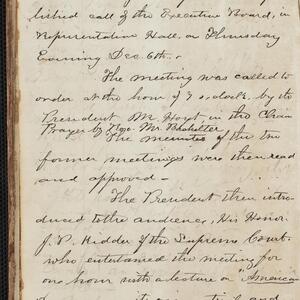 lished call of the Executive Board, in
Representative Hall, on Thursday
Evening Dec. 6th.
The meeting was called to
order at the hour of 7 o,clock, by the
President M. Hoyt, in the Chair
Prayer by Rev. Mr.
The minutes of the two
former meetings were then read
and approved.
The President then intro-
duced to the audience, His Honor
J. P. Kidder of the Supreme Court.
who entertained the meeting for
one hour with a lecture on "American